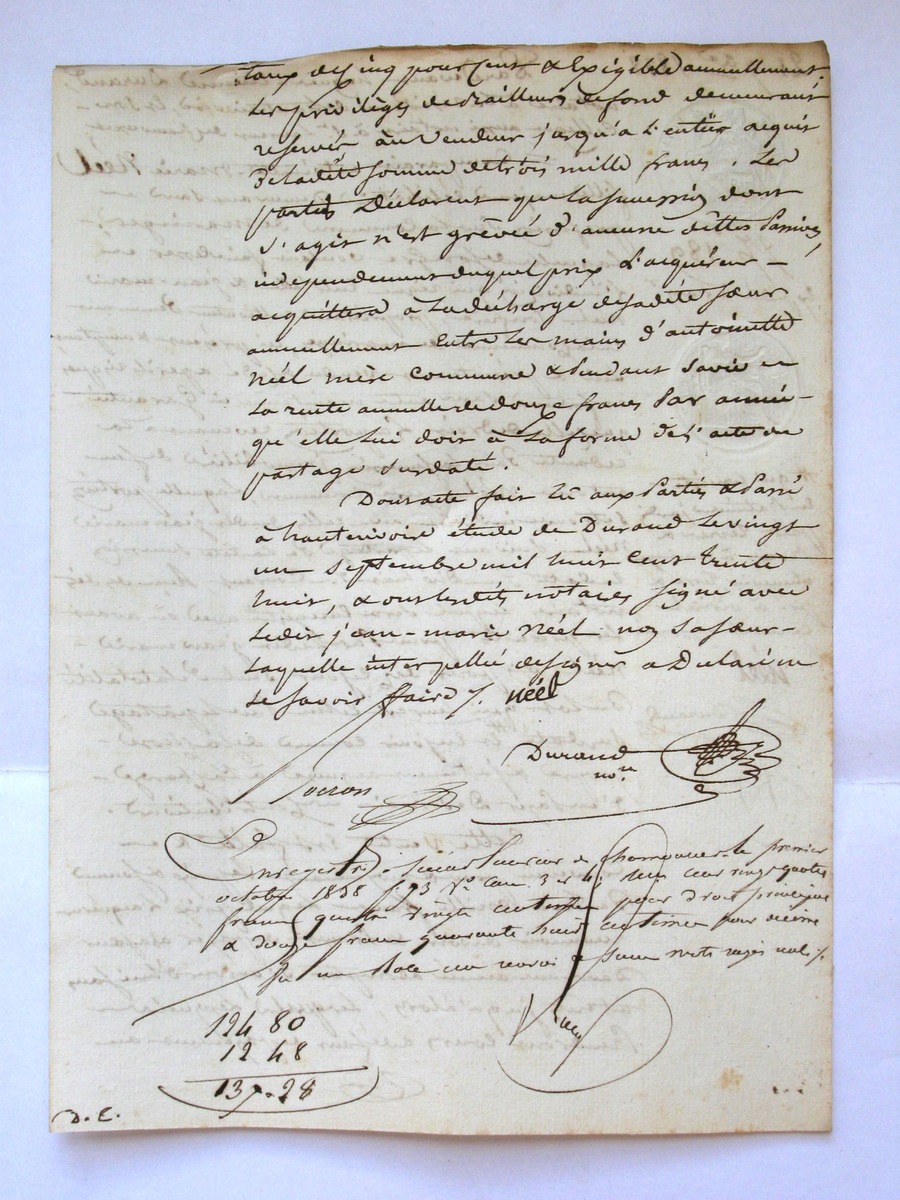 taux de cinq pour cent & Exigible annuellement.
Les privilèges de Bailleurs de fond demeurant
reservés au Vendeur jusqu'a l'entier acquit
de ladite somme de trois mille francs. Les
parties Déclarent que la succession dont
s'agit n'est grêvée d'aucune dettes Passives,
independemment duquel prix l'acquéreur –
acquittera à la décharge de sadite sœur
annuellement Entre les mains d'antoinette
Néél mère commune & Pendant sa vie
la rente annuelle de douze francs Par année –
qu'elle lui doit à la forme de l'acte de
partage susdaté.
Dont acte fait lû aux Parties & Passé
à hauterivoire étude de Durand Le vingt
un septembre mil huit cent trente
huit, & ont lesdits notaires signé avec
ledit jean-marie Néél non sa sœur –
laquelle interpellée de signer a Déclaré ne
le savoir faire /. Néél
Durand
nore
Enregistré à le premier
octobre 1838 f. 73 Vo case 3 et 4, reçu cent vingt quatre
francs quatre vingts centimes pour droit principal
& douze francs quarante huit centimes pour décime
un renvoi mots rayés nuls /.
124 80
12 48
137-28
D. E.